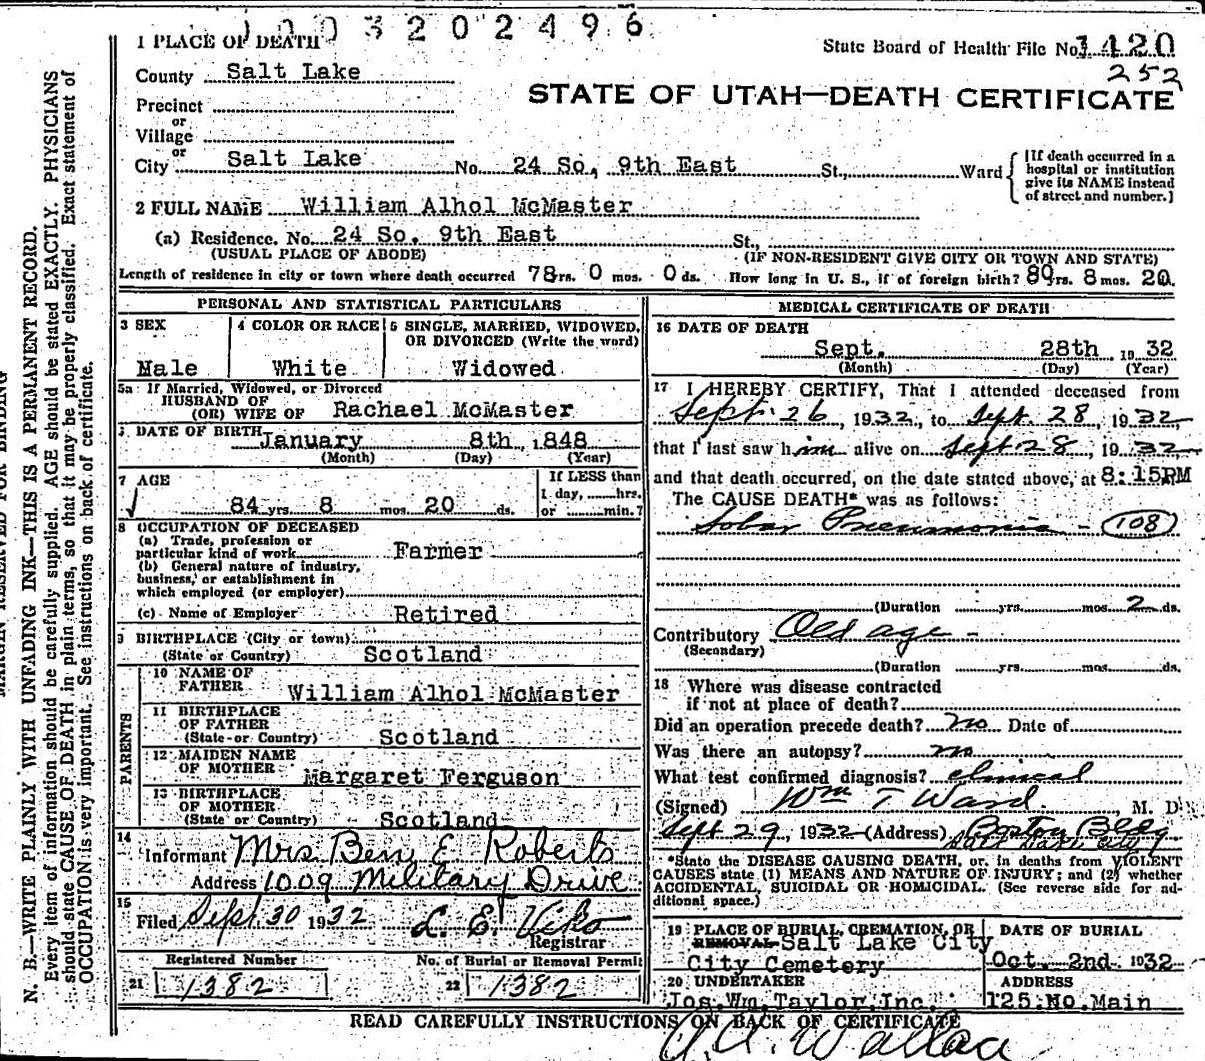 1003202496
1 PLACE OF DEATH
State Board of Health File No. 1420
County Salt Lake
252
STATE OF UTAH—DEATH CERTIFICATE
Precinct
or
Village
or
City Salt Lake No. 24 So, 9th East St., Ward
[If death occurred in a
hospital or institution
give its NAME instead
of street and number.]
2 FULL NAME William Alhol McMaster
(a) Residence. No. 24 So. 9th East St.,
(USUAL PLACE OF ABODE) (IF NON-RESIDENT GIVE CITY OR TOWN AND STATE)
Length of residence in city or town where death occurred 78 yrs. 0 mos. 0 ds. How long in U. S., if of foreign birth? 80 yrs. 8 mos. 20 d.
PERSONAL AND STATISTICAL PARTICULARS
3 SEX
Male
4 COLOR OR RACE
White
5 SINGLE, MARRIED, WIDOWED,
OR DIVORCED (Write the word)
Widowed
5a If Married, Widowed, or Divorced
HUSBAND OF
(OR) WIFE OF Rachael McMaster
DATE OF BIRTH January 8th, 1848
(Month) (Day) (Year)
7 AGE
84 yrs. 8 mos. 20 ds.
If LESS than
1 day, hrs.
or min.?
8 OCCUPATION OF DECEASED
(a) Trade, profession or
particular kind of work Farmer
(b) General nature of industry,
business, or establishment in
which employed (or employer)
(c) Name of Employer Retired
9 BIRTHPLACE (City or town)
(State or Country) Scotland
PARENTS
10 NAME OF
FATHER William Alhol McMaster
11 BIRTHPLACE
OF FATHER
(State or Country) Scotland
12 MAIDEN NAME
OF MOTHER Margaret Ferguson
13 BIRTHPLACE
OF MOTHER
(State or Country) Scotland
14
Informant Mrs Ben E Roberts
Address 1009 Military Drive
15
Filed Sept. 30 1932 L. E. Viko
Registrar
Registered Number No. of Burial or Removal Permit
21 1382 22 1382
MEDICAL CERTIFICATE OF DEATH
16 DATE OF DEATH
Sept. 28th 1932
(Month) (Day) (Year)
17 I HEREBY CERTIFY, That I attended deceased from
Sept. 26, 1932, to Sept. 28, 1932,
that I last saw him alive on Sept 28, 1932
and that death occurred, on the date stated above, at 8:15PM
The CAUSE DEATH* was as follows:
Lobar Pneumonia - 108
(Duration yrs. mos. 2 ds.
Contributory Old age -
(Secondary)
(Duration yrs. mos. ds.
18 Where was disease contracted
if not at place of death?
Did an operation precede death? no Date of
Was there an autopsy? no
What test confirmed diagnosis? clinical
(Signed) Wm T Ward, M. D.
Sept 29, 1932 (Address) Boston Bldg
Salt Lake City
*State the DISEASE CAUSING DEATH, or, in deaths from VIOLENT
CAUSES state (1) MEANS AND NATURE OF INJURY; and (2) whether
ACCIDENTAL, SUICIDAL OR HOMICIDAL. (See reverse side for ad-
ditional space.)
19 PLACE OF BURIAL, CREMATION, OR
REMOVAL Salt Lake City
City Cemetery
DATE OF BURIAL
Oct. 2nd. 1932
20 UNDERTAKER
Jos. Wm. Taylor, Inc.
ADDRESS
125 No. Main
READ CAREFULLY INSTRUCTIONS ON BACK OF CERTIFICATE
Wallace
MARGIN RESERVED FOR BINDING
N. B.—WRITE PLAINLY WITH UNFADING INK—THIS IS A PERMANENT RECORD.
Every item of information should be carefully supplied. AGE should be stated EXACTLY. PHYSICIANS
should state CAUSE OF DEATH in plain terms, so that it may be properly classified. Exact statement of
OCCUPATION is very important. See instructions on back of certificate.